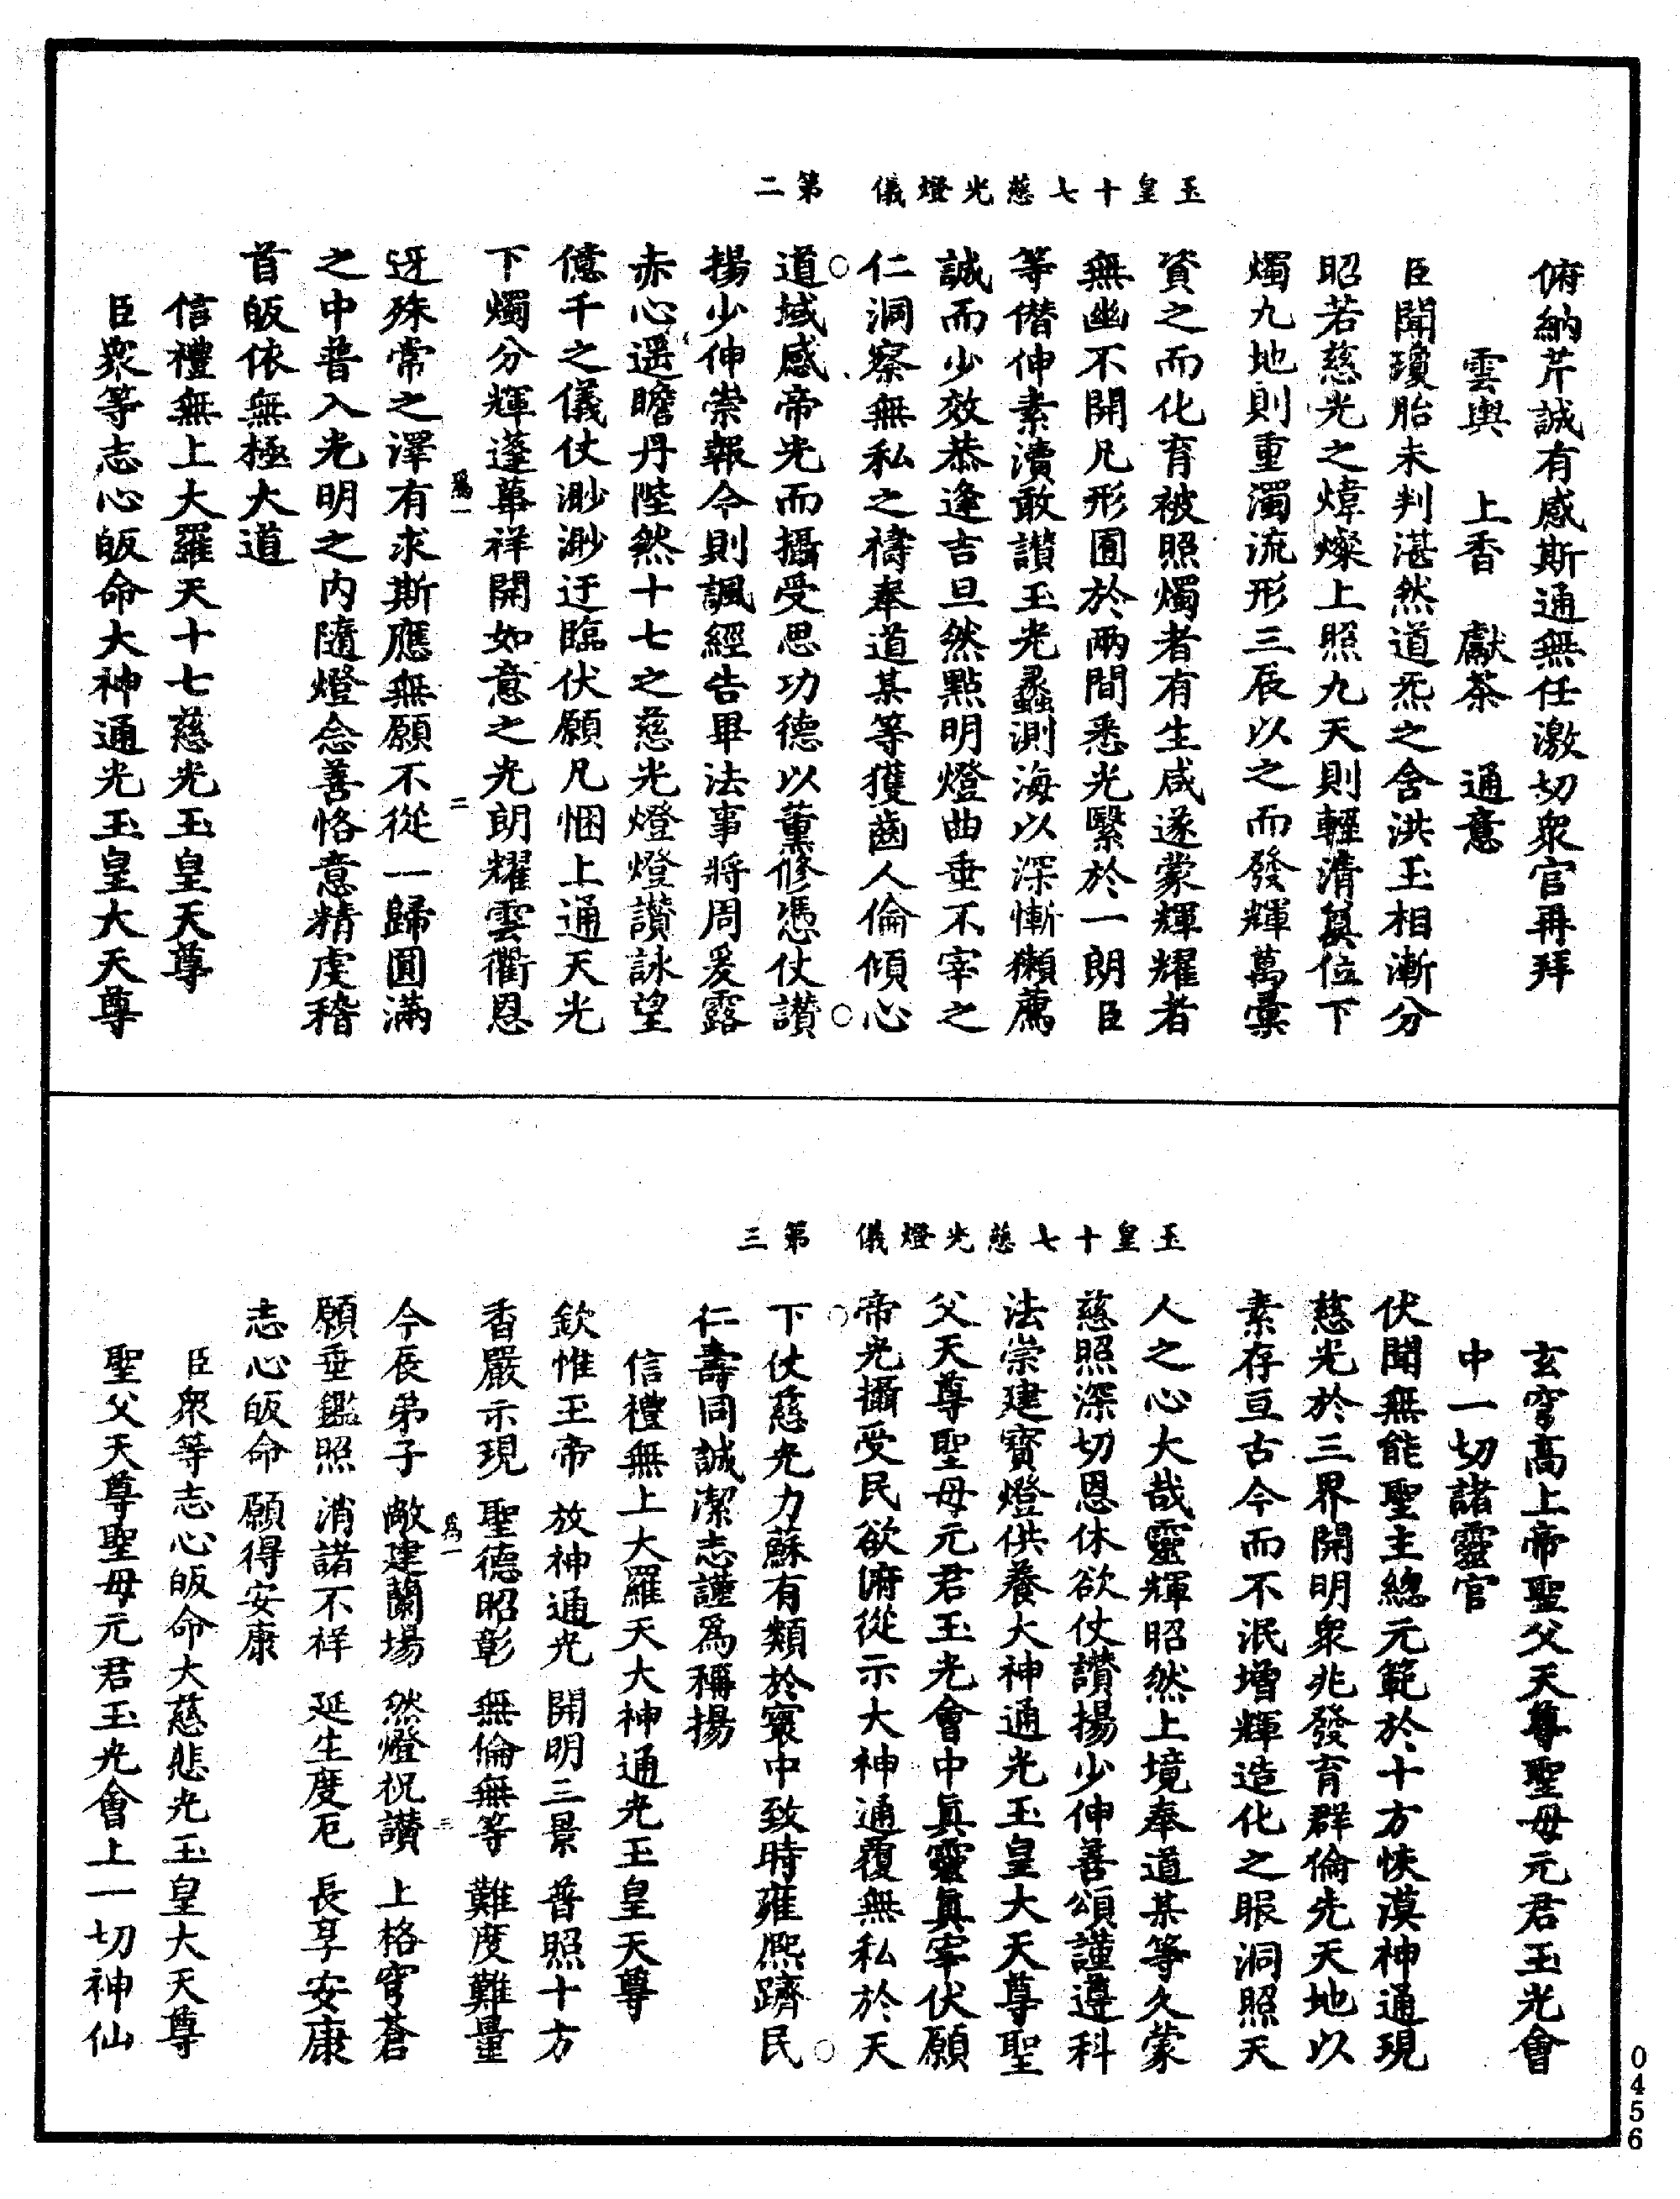 玉皇十七慈光燈儀　第二
俯納芹誠有感斯通無任激切衆官再拜
雲輿　上香　獻茶　通意
臣聞瓊胎未判湛然道炁之含洪玉相漸分
昭若慈光之煒燦上照九天則輕清奠位下
燭九地則重濁流形三辰以之而發輝萬彙
資之而化育被照燭者有生咸遂蒙輝耀者
無幽不開凡形囿於兩間悉光繫於一朗臣
等僭伸素瀆敢讃玉光蠡測海以深慚獺薦
誠而少效恭逢吉旦然點明燈曲垂不宰之
仁洞察無私之禱奉道某等獲齒人倫傾心
道域感帝光而攝受思功德以薰修憑仗讃
揚少伸崇報令則諷經告畢法事將周爰露
赤心遥瞻丹陛然十七之慈光燈燈讃詠望
億千之儀仗渺渺迂臨伏願凡悃上通天光
下燭分輝蓬蓽祥開如意之光朗耀雲衢恩
迓殊常之澤有求斯應無願不從一歸圓滿
之中普入光明之内隨燈念善恪意精虔稽
首皈依無極大道
信禮無上大羅天十七慈光玉皇天尊
臣衆等志心皈命大神通光玉皇大天尊
爲一
二
玉皇十七慈光燈儀　第三
玄穹高上帝聖父天尊聖母元君玉光會
中一切諸靈官
伏聞無能聖主總元範於十方恢漠神通現
慈光於三界開明衆兆發育群倫先天地以
素存亘古今而不泯增輝造化之眼洞照天
人之心大哉靈輝昭然上境奉道某等久蒙
慈照深切恩休欲仗讃揚少伸善頌謹遵科
法崇建寳燈供養大神通光玉皇大天尊聖
父天尊聖母元君玉光會中眞靈眞宰伏願
帝光攝受民欲俯從示大神通覆無私於天
下仗慈光力蘇有類於寰中致時雍熙躋民
仁壽同誠潔志謹爲稱揚
信禮無上大羅天大神通光玉皇天尊
欽惟玉帝　放神通光　開明三景　普照十方
香嚴示現　聖德昭彰　無倫無等　難度難量
今辰弟子　敞建蘭場　然燈祝讃　上格穹蒼
願垂鑑照　消諸不祥　延生度厄　長享安康
志心皈命　願得安康
臣衆等志心皈命大慈悲光玉皇大天尊
聖父天尊聖母元君玉光會上一切神仙
爲一
三
0456